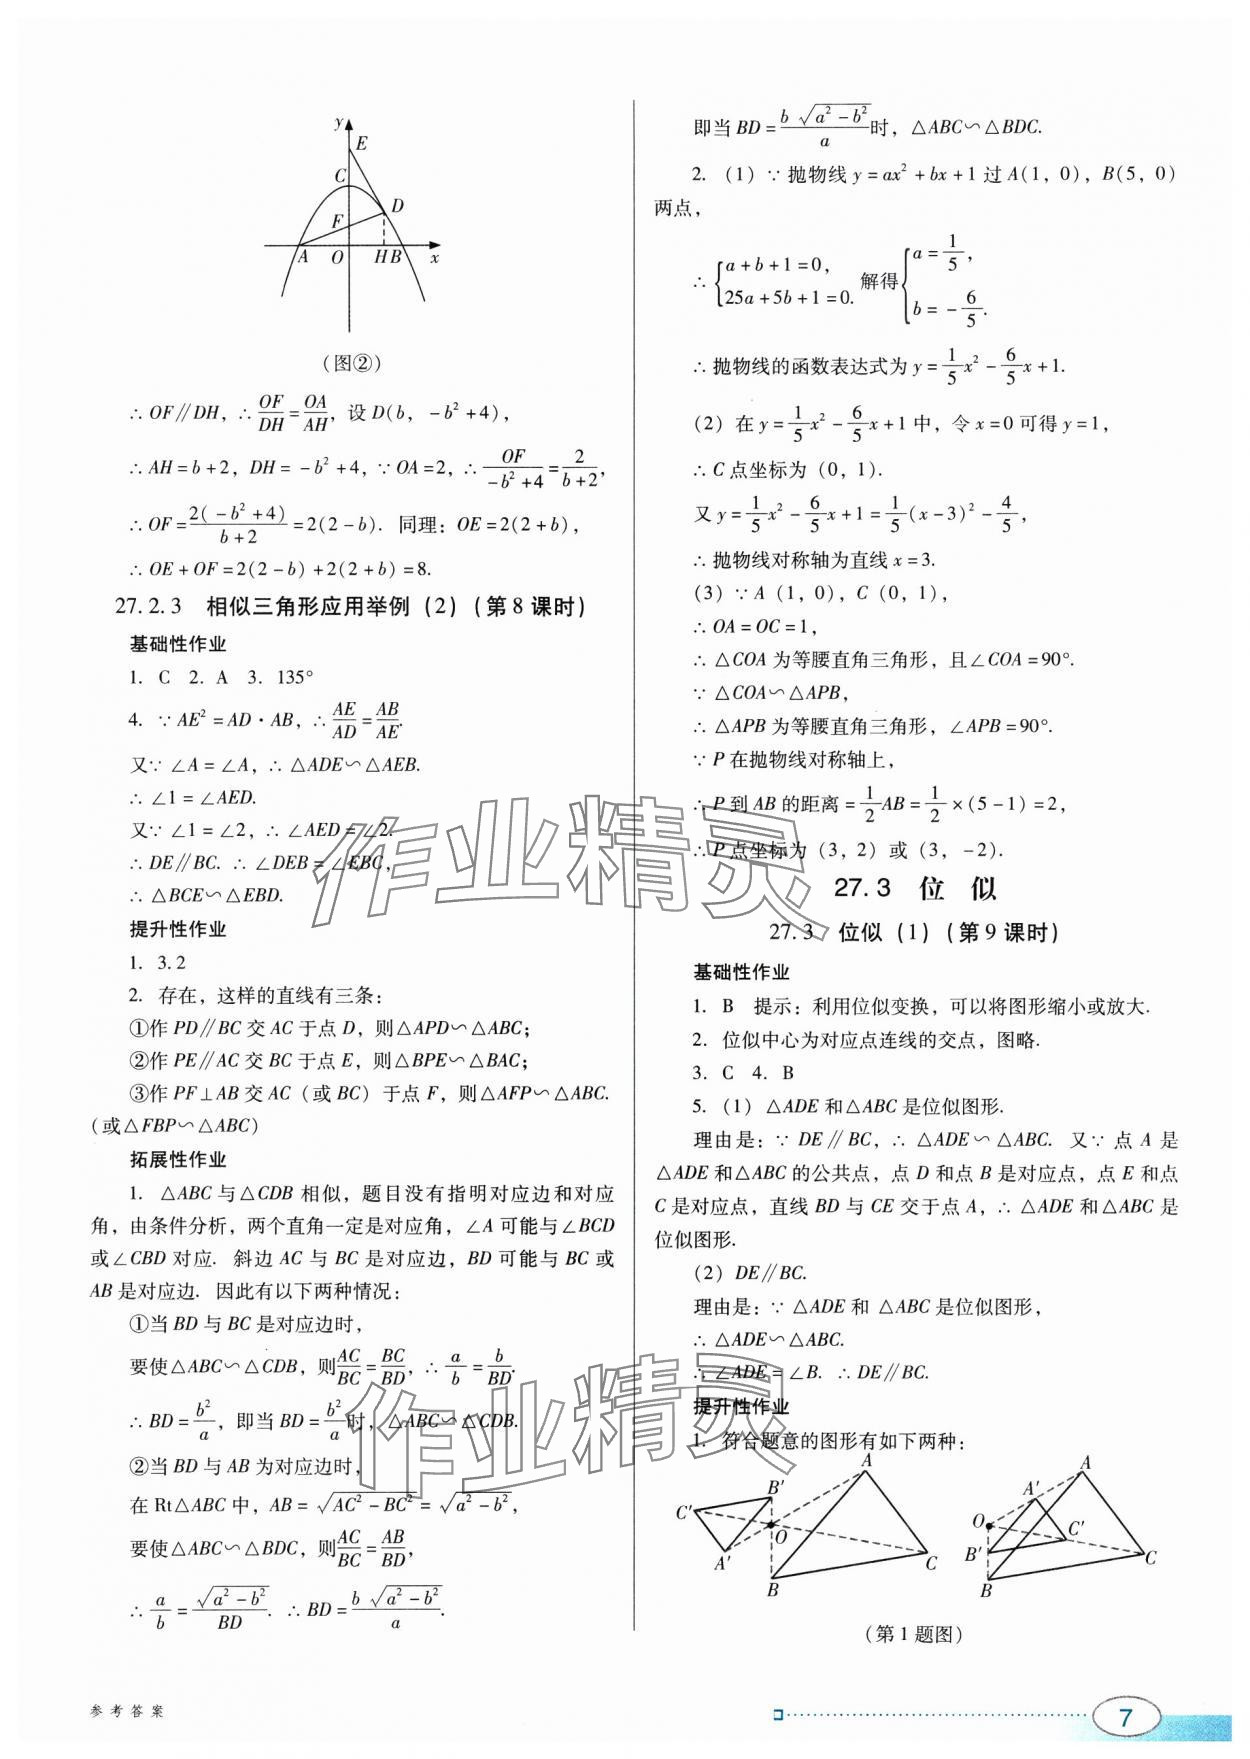 y
E
C
D
F
A O H B x
(图②)
∴ OF∥DH, ∴ OF/DH = OA/AH, 设 D(b, -b²+4),
∴ AH=b+2, DH=-b²+4, ∵ OA=2, ∴ OF/(-b²+4) = 2/(b+2),
∴ OF = 2(-b²+4)/(b+2) = 2(2-b). 同理: OE=2(2+b),
∴ OE+OF=2(2-b)+2(2+b)=8.
27.2.3 相似三角形应用举例(2)(第8课时)
基础性作业
1. C 2. A 3. 135°
4. ∵ AE²=AD·AB, ∴ AE/AD = AB/AE.
又∵ ∠A=∠A, ∴ △ADE∽△AEB.
∴ ∠1=∠AED.
又∵ ∠1=∠2, ∴ ∠AED=∠2.
∴ DE∥BC. ∴ ∠DEB=∠EBC,
∴ △BCE∽△EBD.
提升性作业
1. 3.2
2. 存在, 这样的直线有三条:
①作 PD∥BC 交 AC 于点 D, 则△APD∽△ABC;
②作 PE∥AC 交 BC 于点 E, 则△BPE∽△BAC;
③作 PF⊥AB 交 AC(或 BC)于点 F, 则△AFP∽△ABC.
(或△FBP∽△ABC)
拓展性作业
1. △ABC 与△CDB 相似, 题目没有指明对应边和对应
角, 由条件分析, 两个直角一定是对应角, ∠A 可能与∠BCD
或∠CBD 对应. 斜边 AC 与 BC 是对应边, BD 可能与 BC 或
AB 是对应边. 因此有以下两种情况:
①当 BD 与 BC 是对应边时,
要使△ABC∽△CDB, 则 AC/BC = BC/BD, ∴ a/b = b/BD.
∴ BD = b²/a, 即当 BD = b²/a 时, △ABC∽△CDB.
②当 BD 与 AB 为对应边时,
在 Rt△ABC 中, AB = √(AC²-BC²) = √(a²-b²),
要使△ABC∽△BDC, 则 AC/BC = AB/BD,
∴ a/b = √(a²-b²)/BD. ∴ BD = b√(a²-b²)/a.
即当 BD = b√(a²-b²)/a 时, △ABC∽△BDC.
2. (1) ∵ 抛物线 y=ax²+bx+1 过 A(1, 0), B(5, 0)
两点,
∴ { a+b+1=0, 25a+5b+1=0. 解得 { a=1/5, b=-6/5.
∴ 抛物线的函数表达式为 y=1/5x²-6/5x+1.
(2) 在 y=1/5x²-6/5x+1 中, 令 x=0 可得 y=1,
∴ C 点坐标为 (0, 1).
又 y=1/5x²-6/5x+1=1/5(x-3)²-4/5,
∴ 抛物线对称轴为直线 x=3.
(3) ∵ A (1, 0), C (0, 1),
∴ OA=OC=1,
∴ △COA 为等腰直角三角形, 且∠COA=90°.
∵ △COA∽△APB,
∴ △APB 为等腰直角三角形, ∠APB=90°.
∵ P 在抛物线对称轴上,
∴ P 到 AB 的距离=1/2AB=1/2×(5-1)=2,
∴ P 点坐标为 (3, 2) 或 (3, -2).
27.3 位 似
27.3 位似(1)(第9课时)
基础性作业
1. B 提示: 利用位似变换, 可以将图形缩小或放大.
2. 位似中心为对应点连线的交点, 图略.
3. C 4. B
5. (1) △ADE 和△ABC 是位似图形.
理由是: ∵ DE∥BC, ∴ △ADE∽△ABC. 又∵ 点 A 是
△ADE 和△ABC 的公共点, 点 D 和点 B 是对应点, 点 E 和点
C 是对应点, 直线 BD 与 CE 交于点 A, ∴ △ADE 和△ABC 是
位似图形.
(2) DE∥BC.
理由是: ∵ △ADE 和 △ABC 是位似图形,
∴ △ADE∽△ABC.
∴ ∠ADE=∠B. ∴ DE∥BC.
提升性作业
1. 符合题意的图形有如下两种:
A B' C' O A' C B
A A' O C' B' C B
(第1题图)
作业精灵
作业精灵
参考答案
7